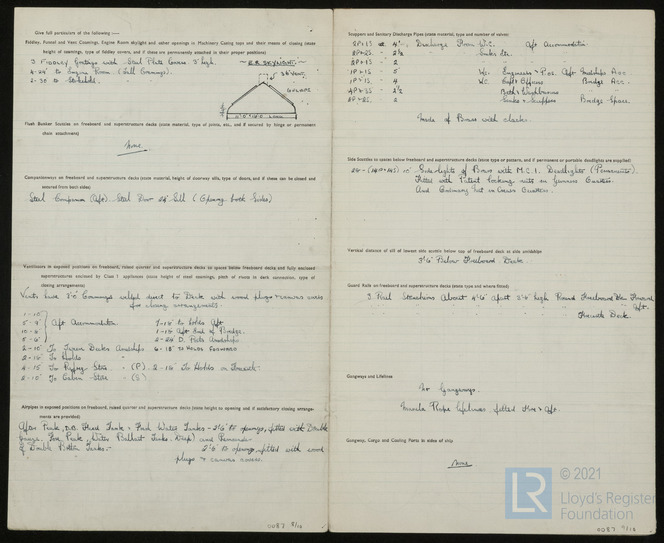 Give full particulars of the following :—
Fiddley, Funnel and Vent Coamings, Engine Room skylight and other openings in Machinery Casing tops and their means of closing (state
height of coamings, type of fiddley covers, and if these are permanently attached in their proper positions)
3 Fiddley Gratings with Steel Plate Covers 3' high.
4-24" to Engine Room (Tall Coamings).
2-30 to Stokehold.
~ E.R. SKYLIGHT. ~
Flush Bunker Scuttles on freeboard and superstructure decks (state material, type of joints, etc., and if secured by hinge or permanent
chain attachment)
None
Companionways on freeboard and superstructure decks (state material, height of doorway sills, type of doors, and if these can be closed and
secured from both sides)
Steel Companion (Aft). Steel Door 24" Sill (Opening both Sides)
Ventilators in exposed positions on freeboard, raised quarter and superstructure decks to spaces below freeboard decks and fully enclosed
superstructures enclosed by Class 1 appliances (state height of steel coamings, pitch of rivets in deck connection, type of
closing arrangements)
Vents have 3'0" Coamings welded direct to Deck with wood plugs & canvas covers
for closing arrangements.
1-10"
5-9" Aft Accommodation 7-18" to Holds Aft.
10-6" 1-18" Aft End of Bridge.
5-6" 2-24 D. Tks Amidships
2-10" To Tween Decks Amidships 6-18" to HOLDS FORWARD
2-12" To Holds "
4-15 To Refrig. Stor. " (P). 2-18 To Holds in Forward
2-10" To Cabin Stor. " (S)
Airpipes in exposed positions on freeboard, raised quarter and superstructure decks (state height to opening and if satisfactory closing arrange-
ments are provided)
After Peak, D.B. Feed Tank & Fresh Water Tanks - 2'6" to openings, fitted with Double
Gauze. Fore Peak, Water Ballast Tanks. Deep) and Remainder
of Double Bottom Tanks :- 2'6" to openings, fitted with wood
plugs & canvas covers.
0087 9/10
Scuppers and Sanitary Discharge Pipes (state material, type and number of valves)
" " Sinks Etc. "
1P+1S - 5" W.C. Engineers & P.o's. Aft. Amidships Acc.
1P+1S - 4 W.C. Capt's & Officers Bridge Acc.
Baths & Washbasins " "
2P+2S. 2 Sinks & Scuppers Bridge Space.
Made of Brass with clacks.
Side Scuttles to spaces below freeboard and superstructure decks (state type or pattern, and if permanent or portable deadlights are supplied)
Sidelights of Brass with M.C.I. Deadlights (Permanent).
Fitted with Patent Locking nuts in
And Ordinary Nut in Crews Quarters.
Vertical distance of sill of lowest side scuttle below top of freeboard deck at side amidships
3'6" Below Freeboard Deck.
Guard Rails on freeboard and superstructure decks (state type and where fitted)
3 Rail Stanchions About 4'6" apart 3'6" high Round Freeboard Dk Forward
" " Aft.
" Forecastle Deck.
Gangways and Lifelines
No Gangways.
Manila Rope lifelines fitted Fore & Aft.
Gangway, Cargo and Coaling Ports in sides of ship
None
LR
© 2021
Lloyd's Register
Foundation
0087 9/10